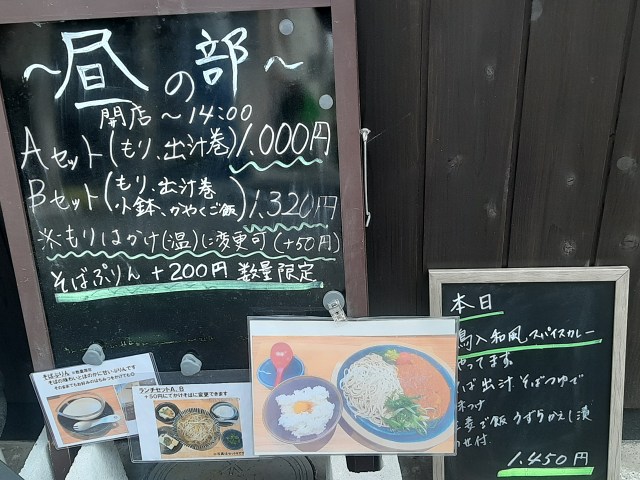 ～昼の部～
開店～14:00
Aセット(もり、出汁巻)1.000円
Bセット(もり、出汁巻 小鉢、かやくご飯)1.320円
※もりはかけ(温)に変更可(+50円)
そばぷりん+200円 数量限定
そばぷりん
そばの味わいとほのかに甘いぷりんです
ランチセットA、B
+50円にてかけそばに変更できます
本日
鴨入和風スパイスカレー
やってます。
そば出汁そばつゆで
味つけ
ご飯 うずらかえし漬
のせ付
1.450円